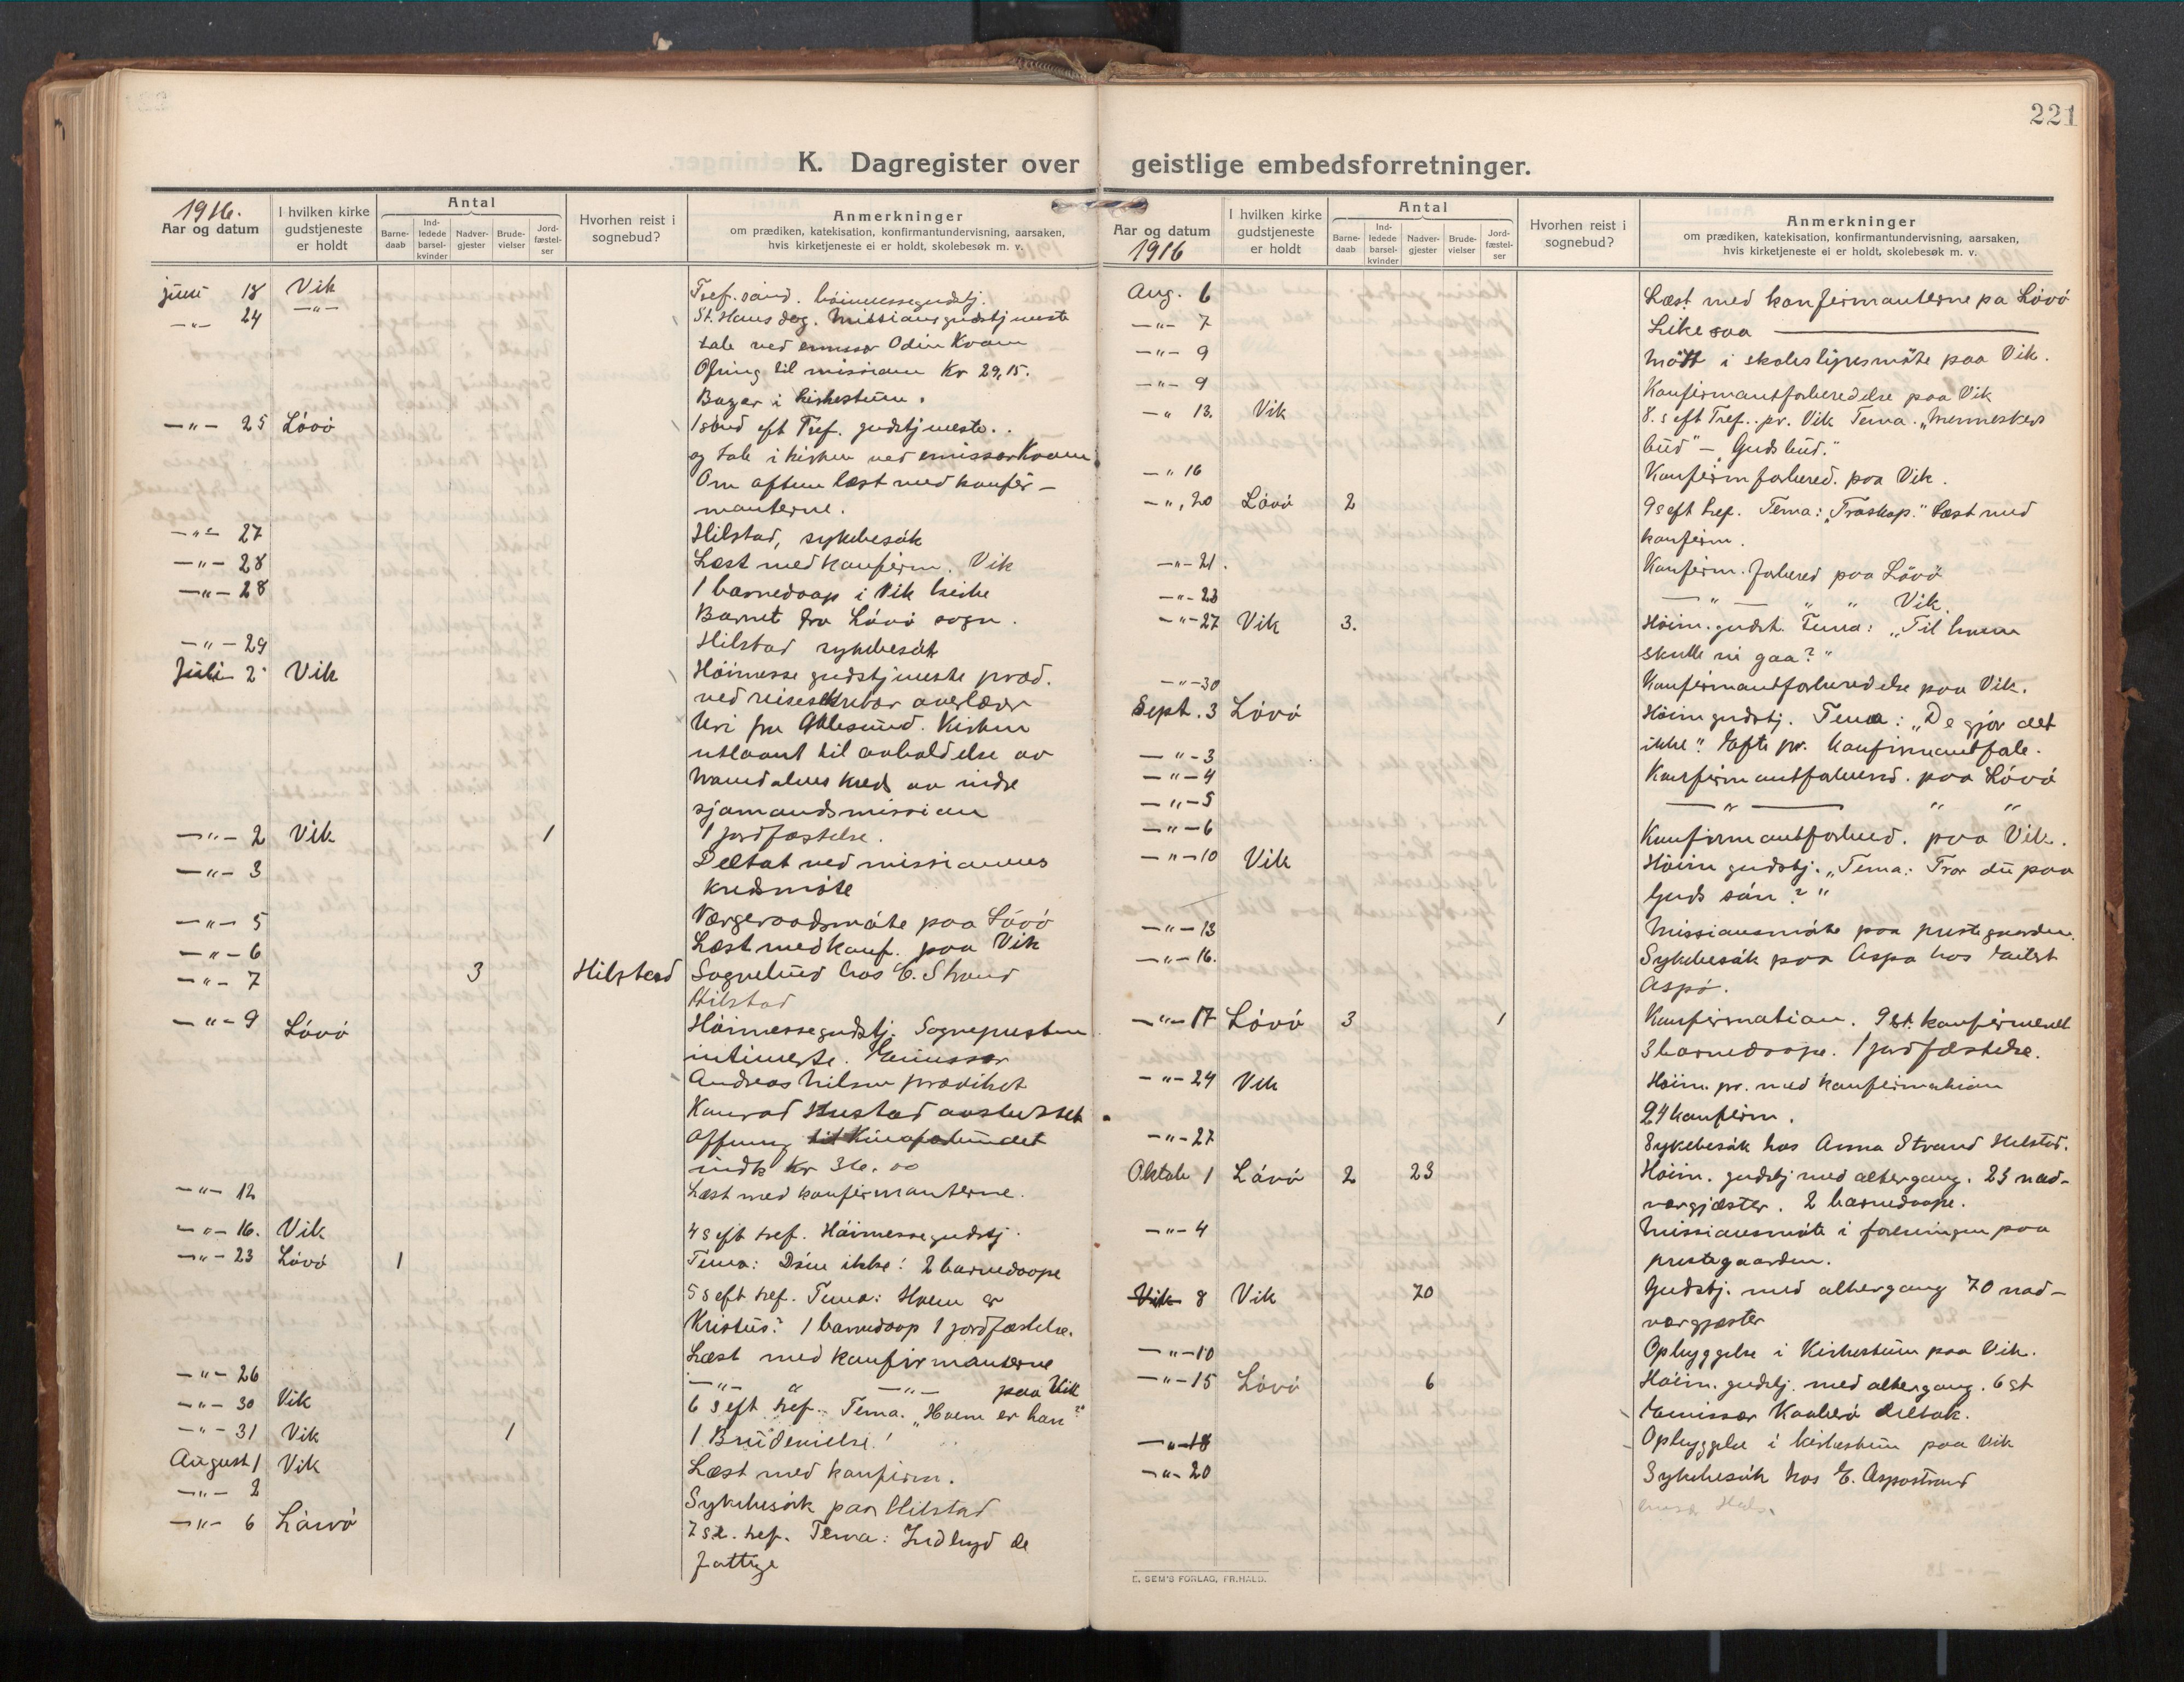 221
K. Dagregister over geistlige embedsforretninger.
1916.
Aar og datum
I hvilken kirke gudstjeneste er holdt
Antal
Barne-daab
Ind-ledede barsel-kvinder
Nadver-gjester
Brude-vielser
Jord-fæstel-ser
Hvorhen reist i sognebud?
Anmerkninger
om prædiken, katekisation, konfirmantundervisning, aarsaken,
hvis kirketjeneste ei er holdt, skolebesøk m. v.
juni 18 Vik Tref. sönd. höimessegudstj.
—"— 24 —"— St. Hans dag. Missionsgudstjeneste
tale ved emissær Odin Kvam
Ofring til missionen Kr 29,15.
Bazar i kirkestuen.
—"— 25 Lövö 1 sönd eft Tref. gudstjeneste.
og tale i kirken ved emissær Kvam
Om aften læst med konfir-
manterne.
—"— 27 Hilstad, sykebesök
—"— 28 Læst med konfirm. Vik
—"— 28 1 barnedaap i Vik kirke
Barnet fra Lövö sogn.
—"— 29 Hilstad sykebesök
Juli 2 Vik Höimesse gudstjeneste præd.
ved reisesekretær overlærer
Uri fra Aalesund. Kirken
utlaant til avholdelse av
Namdalens kreds av indre
sjömandsmission
—"— 2 Vik 1 1 jordfæstelse.
—"— 3 Deltat ved missionens
kredsmöte
—"— 5 Værgeraadsmöte paa Lövö
—"— 6 Læst med konf. paa Vik
—"— 7 3 Hilstad Sognebud hos E. Strand
Hilstad
—"— 9 Lövö Höimessegudstj. Sognepresten
intimerte. Emissær
Andreas Nilsen prædiket
Konrad Hustad avsluttet
Offring til Kinaforbundet
indk Kr 36.00
—"— 12 Læst med konfirmanterne.
—"— 16. Vik 4 s eft tref. Höimessegudstj.
—"— 23 Lövö 1 Tema: Döm ikke! 2 barnedaape
5 s eft tref. Tema: Hvem er
Kristus? 1 barnedaap 1 jordfæstelse.
Læst med konfirmanterne
—"— 26 —"— —"— paa Vik
—"— 30 Vik 6 s eft tref. Tema. „Hvem er han?"
—"— 31 Vik 1 1 Brudevielse!
August 1 Vik Læst med konfirm.
—"— 2 Sykebesök paa Hilstad
—"— 6 Lövö 7 s e. tref. Tema: Indbyd de
fattige
Aar og datum
1916
I hvilken kirke gudstjeneste er holdt
Antal
Barne-daab
Ind-ledede barsel-kvinder
Nadver-gjester
Brude-vielser
Jord-fæstel-ser
Hvorhen reist i sognebud?
Anmerkninger
om prædiken, katekisation, konfirmantundervisning, aarsaken,
hvis kirketjeneste ei er holdt, skolebesøk m. v.
Aug. 6 Læst med konfirmanterne pa Lövö
—"— 7 Likesaa
—"— 9 Mött i skolestyresmöte paa Vik.
—"— 9 Konfirmantforberedelse paa Vik
—" 13. Vik 8. s eft Tref. pr. Vik Tema. „Menneskers
bud" — „Guds bud."
—" 16 Konfirmforbered. paa Vik.
—", 20 Lövö 2 9 s eft tref. Tema: „Troskap." Læst med
konfirm.
—"— 21. Konfirm. forbered paa Lövö
—"— 23 —"— " " Vik.
—"— 27 Vik 3. Höim. gudst. Tema: „Til hvem
skulle vi gaa?"
—"— 30 Konfirmantforberedelse paa Vik.
Sept. 3 Lövö Höim gudstj. Tema: „De gjør det
ikke"
—"— 3
—"— 4 Konfirmantforbered. paa Lövö
—"— 5 —"— " "
—"— 6 Konfirmantforbered. paa Vik.
—"— 10 Vik Höim gudstj. „Tema: Tror du paa
Guds sön?"
—"— 13 Missionsmöte paa prestegaarden.
—"— 16. Sykebesök paa Aspö hos
Aspö.
—"— 17 Lövö 3 1 Konfirmation. 9 st. konfirmeret
3 barnedaape. 1 jordfæstelse.
—"— 24 Vik Höim. pr. med konfirmation
24 konfirm.
—"— 27 Sykebesök hos Anna Strand Hilstad.
Oktobr 1 Lövö 2 23 Höim. gudstj med altergang. 23 nad-
vergjæster. 2 barnedaape.
—"— 4 Missionsmöte i foreningen paa
prestegaarden.
Vik 8 Vik 70 Gudstj. med altergang 70 nad-
vergjæster
—"— 10 Opbyggelse i Kirkestuen paa Vik.
—"— 15 Lövö 6 Höim. gudstj. med altergang. 6 st
Emissær deltok.
—"— 18 Opbyggelse i kirkestuen paa Vik
—"— 20 Sykebesök hos E. Aspöstrand
E. SEM'S FORLAG, FR.HALD.